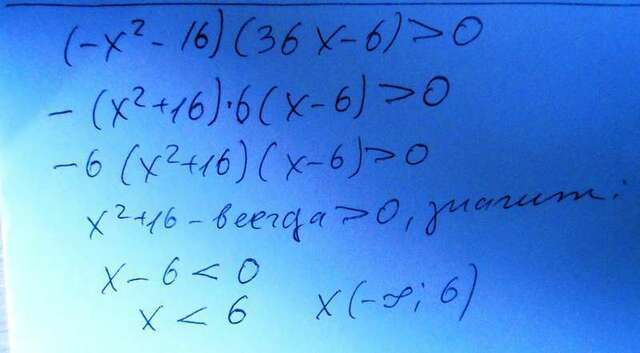 (-x² - 16)(36x-6)>0
- (x²+16)·6(x-6)>0
-6 (x²+16)(x-6)>0
x²+16 - всегда >0, значит:
x-6<0
x<6 x(-∞; 6)